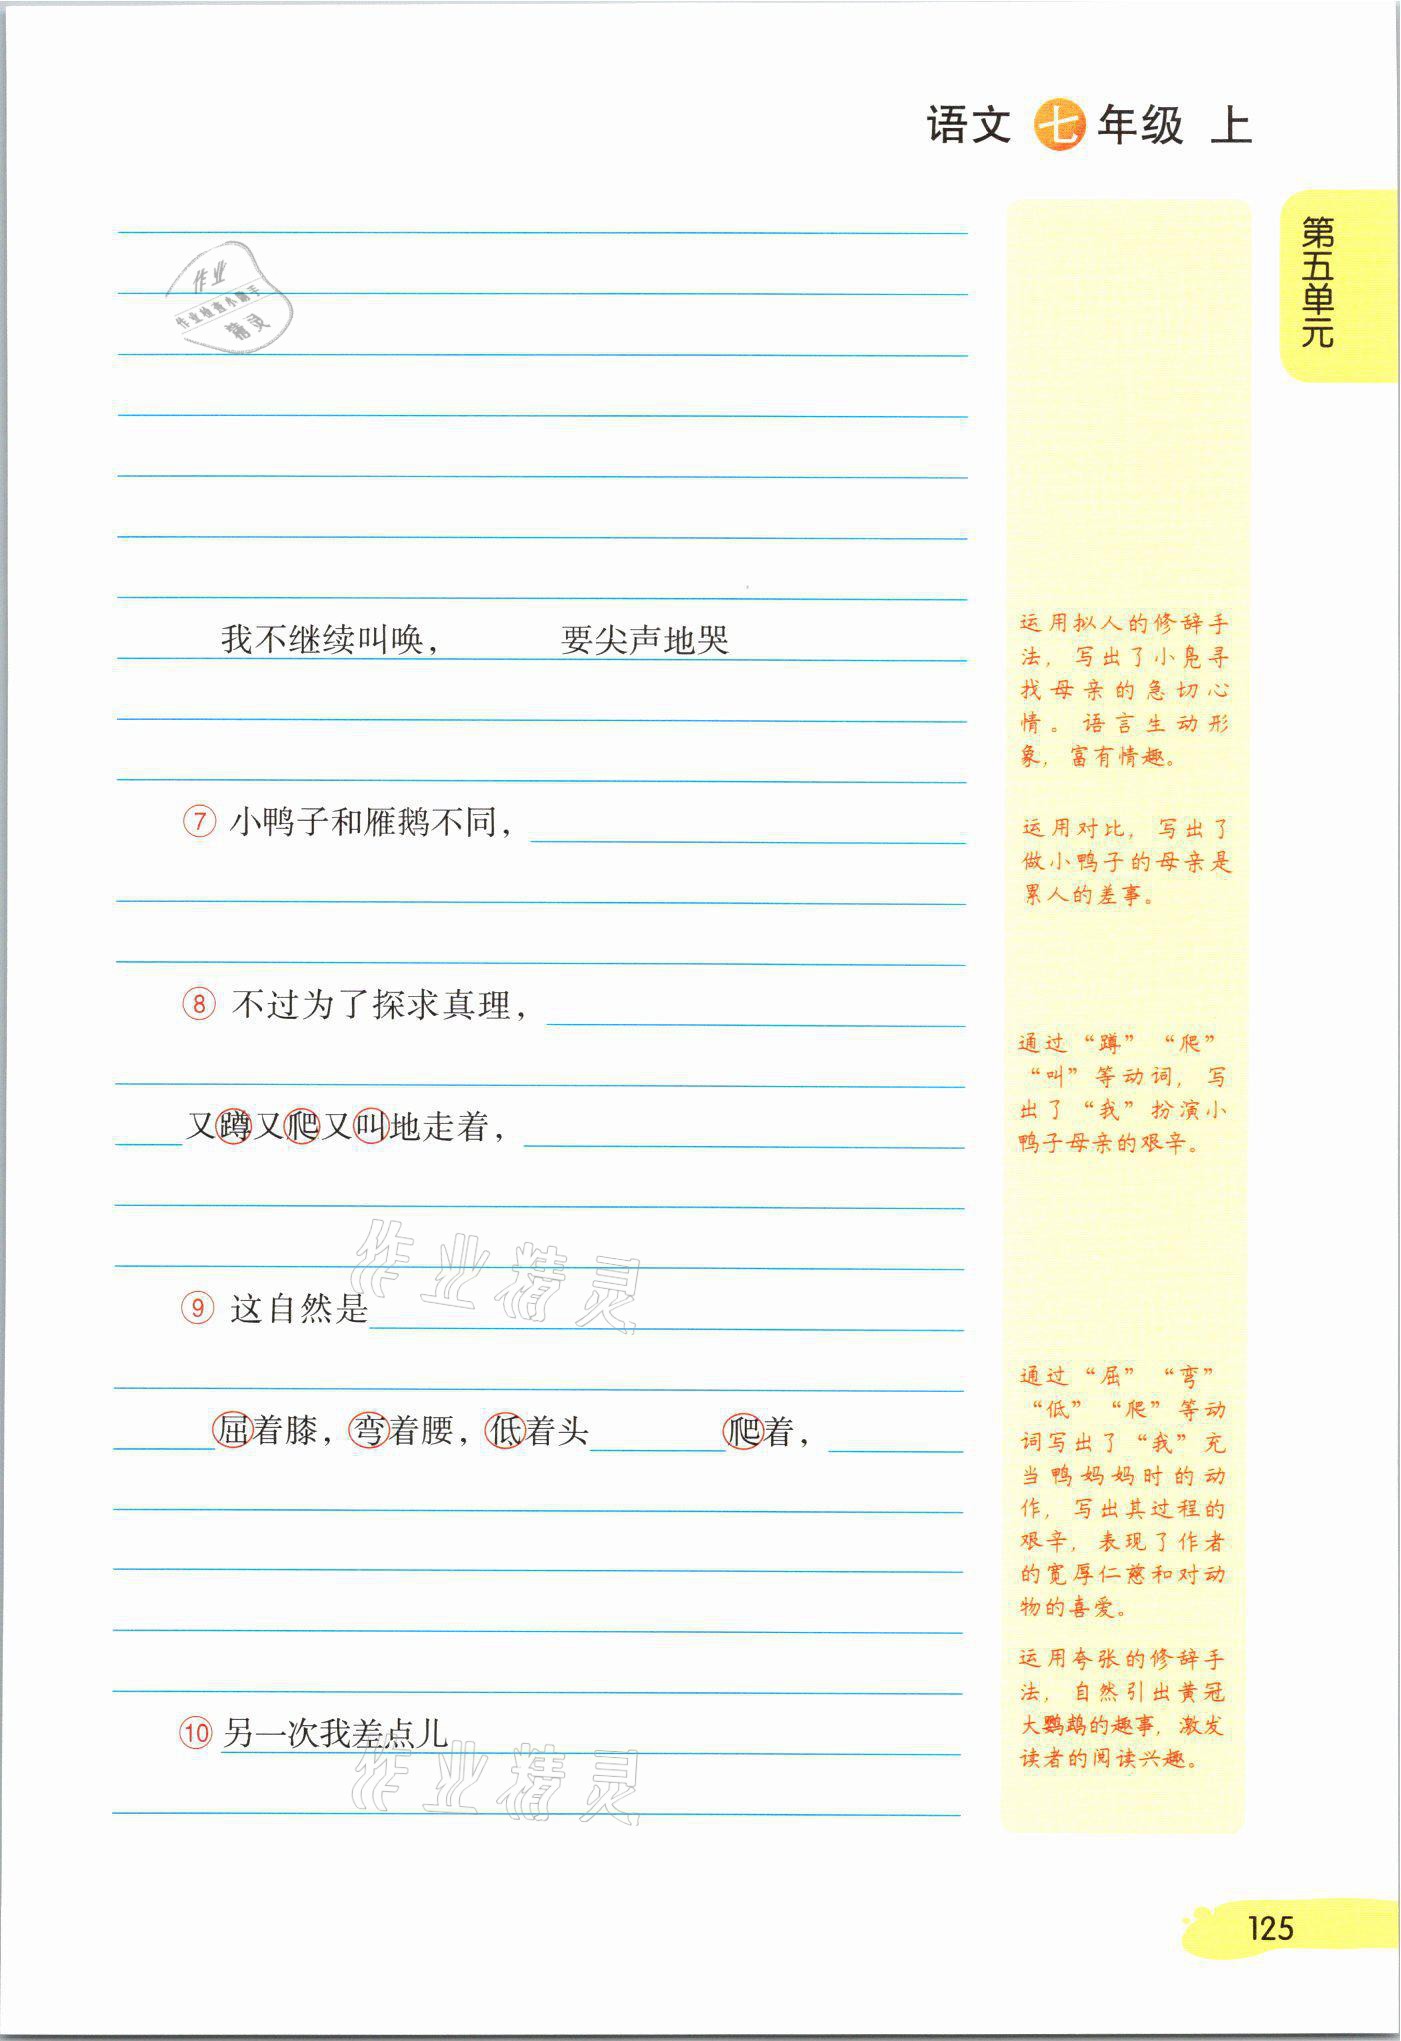 语文 七 年级 上
第五单元
作业
作业检查小助手
精灵
我不继续叫唤， 要尖声地哭
运用拟人的修辞手
法，写出了小凫寻
找母亲的急切心
情。语言生动形
象，富有情趣。
⑦ 小鸭子和雁鹅不同，
运用对比，写出了
做小鸭子的母亲是
累人的差事。
⑧ 不过为了探求真理，
又蹲又爬又叫地走着，
通过“蹲”“爬”
“叫”等动词，写
出了“我”扮演小
鸭子母亲的艰辛。
作业精灵
⑨ 这自然是
屈着膝，弯着腰，低着头 爬着，
通过“屈”“弯”
“低”“爬”等动
词写出了“我”充
当鸭妈妈时的动
作，写出其过程的
艰辛，表现了作者
的宽厚仁慈和对动
物的喜爱。
⑩ 另一次我差点儿
运用夸张的修辞手
法，自然引出黄冠
大鹦鹉的趣事，激发
读者的阅读兴趣。
作业精灵
125